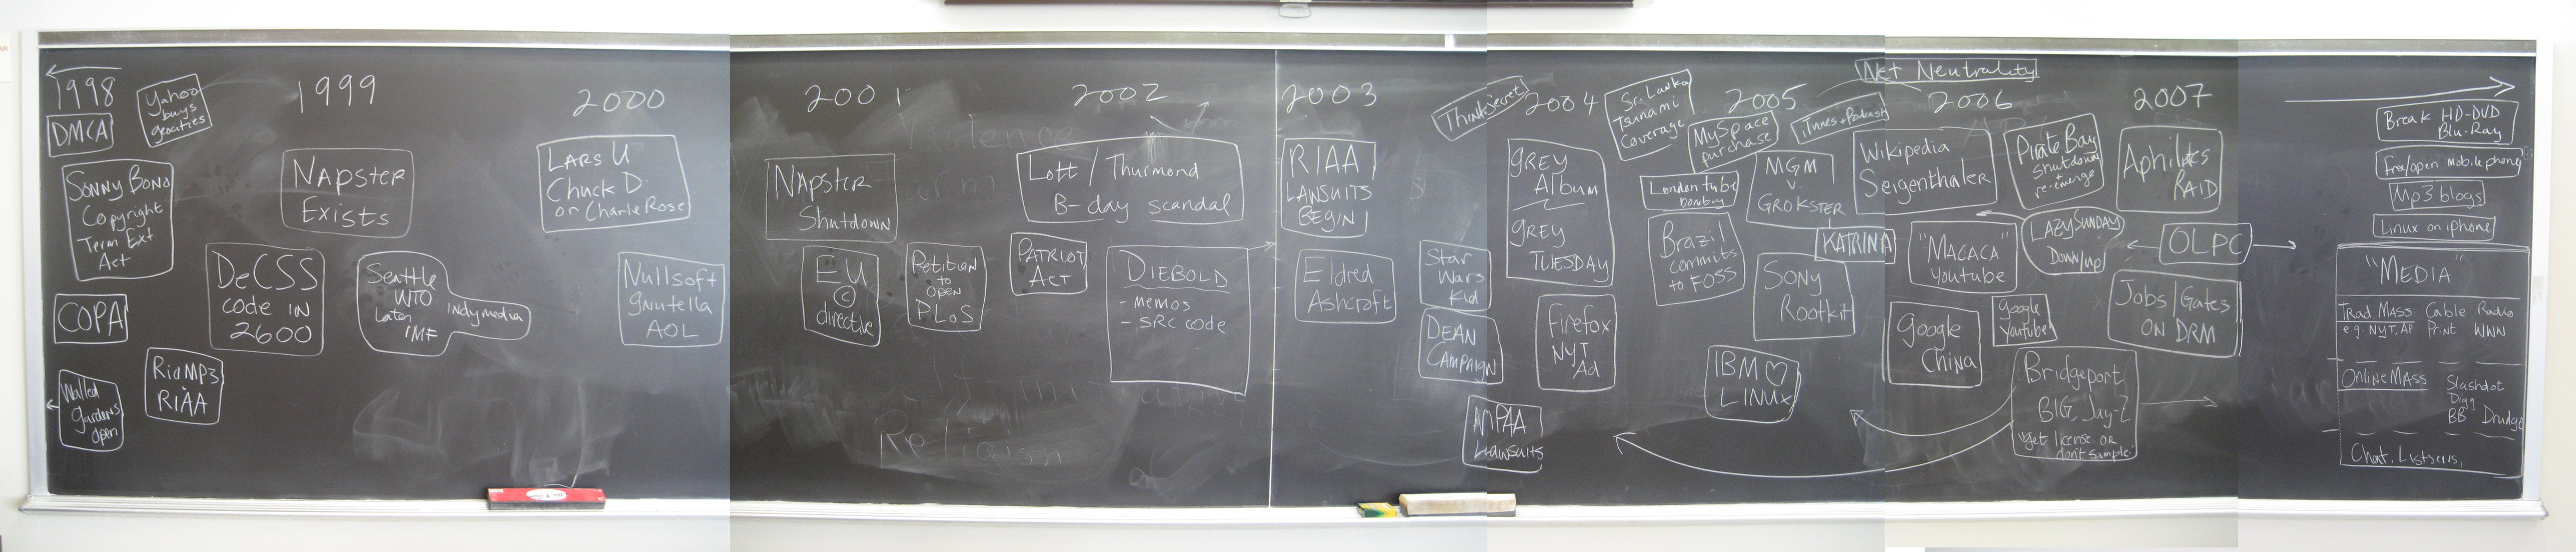 1998
Yahoo
buys
geocities
DMCA
SONNY BONO
Copyright
Term Ext
Act
COPA
Walled
gardens
open
Rio MP3
RIAA
1999
NAPSTER
EXISTS
DeCSS
CODE IN
2600
Seattle
WTO
Later
IMF
indymedia
2000
LARS U
Chuck D.
on Charlie Rose
Nullsoft
gnutella
AOL
2001
NAPSTER
Shutdown
EU
©
directive
Petition
to
OPEN
PLoS
2002
Lott / Thurmond
B-day scandal
PATRIOT
ACT
DIEBOLD
- MEMOS
- SRC CODE
Religion
2003
RIAA
LAWSUITS
BEGIN
Eldred
Ashcroft
Star
Wars
Kid
DEAN
CAMPAIGN
MPAA
Lawsuits
ThinkSecret
2004
GREY
ALBUM
GREY
TUESDAY
Firefox
NYT
Ad
Sri Lanka
Tsunami
Coverage
2005
MySpace
purchase
iTunes + Podcast
London tube
bombing
MGM
v.
GROKSTER
Brazil
commits
to FOSS
SONY
Rootkit
KATRINA
IBM ♡
LINUX
Net Neutrality
2006
Wikipedia
Seigenthaler
Pirate Bay
Shutdown
+
re-emerge
"MACACA"
Youtube
LAZY SUNDAY
Down/up
Google
China
Google
Youtube
Bridgeport
BIG, Jay-Z
"get license or
don't sample."
2007
Aphilltes
RAID
OLPC
Jobs/Gates
ON DRM
Break HD-DVD
Blu-Ray
free/open mobile phone
Mp3 blogs
Linux on iphone
"MEDIA"
Trad MASS Cable Radio
e.g. NYT, AP Print WWN
Online MASS Slashdot
Digg
BB Drudge
Chat, Listservs,